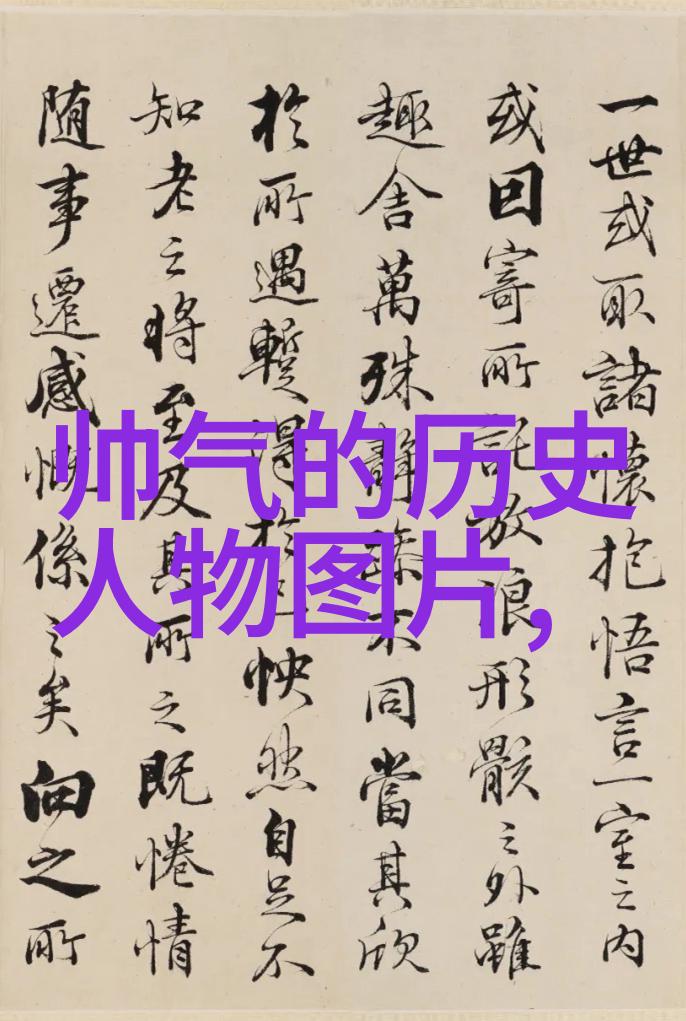 帅气的历史
人物图片,
一世或取諸懷抱悟言一室之内
或因寄所託放浪形骸之外雖
趣舍萬殊靜躁不同當其欣
於所遇暫得於己怏然自足不
知老之將至及其所之既惓情
随事遷感慨係之矣向之所